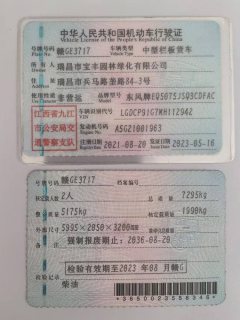 中华人民共和国机动车行驶证
Vehicle License of the People's Republic of China
号牌号码 赣GE3717 车辆类型 中型栏板货车
Plate No. Vehicle Type
所有人 瑞昌市宝丰园林绿化有限公司
Owner
住址 瑞昌市兵马路垄路84-3号
Address
使用性质 非营运 品牌型号 东风牌EQ5075JSQ3CDFAC
江西省九江
市公安局交
通警察支队
车辆识别代号 LGDCP91G7MH112942
VIN
发动机号码 A5G21001963
Engine No.
注册日期 2021-08-20 发证日期 2023-05-16
号牌号码 赣GE3717 档案编号
核定载人数 2人 总质量 7295kg
整备质量 5175kg 核定载质量 1990kg
外廓尺寸 5995×2050×3200mm
备注 强制报废期止:2036-08-20
检验记录 检验有效期至2023年08月赣G
柴油